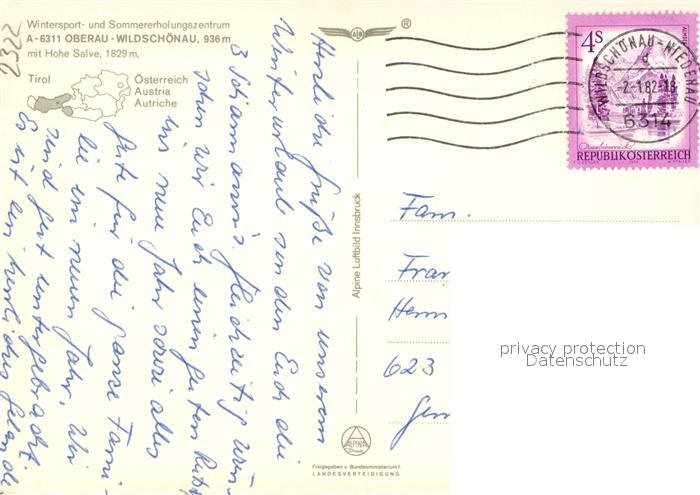 Wintersport- und Sommererholungszentrum
A-6311 OBERAU-WILDSCHÖNAU, 936 m
mit Hohe Salve, 1829 m.
Tirol
Österreich
Austria
Autriche
2322
®
4S
REPUBLIK ÖSTERREICH
WILDSCHÖNAU-NIEDERAU
-2.-1.82-18
6314
Herzliche Grüße von unserem
Winterurlaub senden Euch die
3 Johannni's. Gleichzeitig wün-
schen wir Euch einen guten Rutsch
ins neue Jahr sowie alles
Gute für die ganze Fami-
lie im neuen Jahr. Wir
sind gut untergebracht.
Es ist ein herrliches Gelände
Alpine Luftbild Innsbruck
ALPINA
Druck
Freigegeben v. Bundesministerium f.
LANDESVERTEIDIGUNG
Fam.
Fran
Herm
623
Gem
privacy protection
Datenschutz